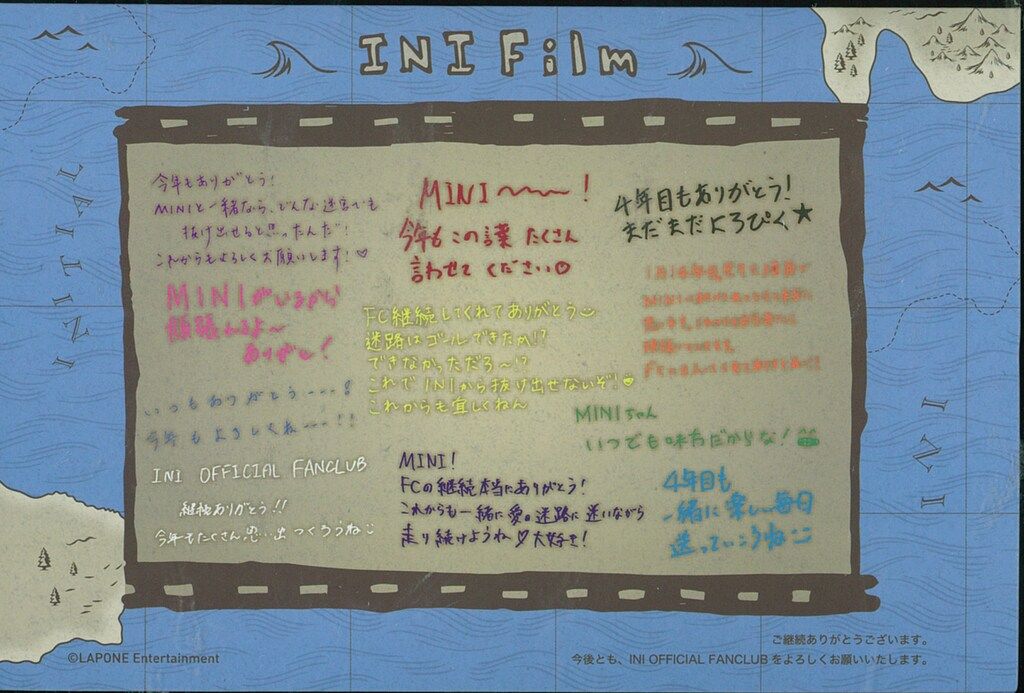 INI Film
INITIAL
INI
今年もありがとう!
MINIと一緒なら、どんな迷宮でも
抜け出せると思ったんだ!
これからもよろしくお願いします!♡
MINI〜〜〜!
今年もこの言葉たくさん
言わせてください♡
4年目もありがとう!
まだまだよろぴく★
MINIがいるから
頑張れるよ〜
ありがとう!
FC継続してくれてありがとう
迷路はゴールできたか!?
できなかっただろ〜!?
これでINIから抜け出せないぞ!
これからも宜しくねん
FCに
いつもありがとう----!
今年もよろしくね---!!
MINIちゃん
いつでも味方だからな!
INI OFFICIAL FANCLUB
継続ありがとう!!
今年もたくさん思い出つくろうね
MINI!
FCの継続本当にありがとう!
これからも一緒に愛の迷路に迷いながら
走り続けようね♡大好き!
4年目も
一緒に楽しい毎日
送っていこうね
ご継続ありがとうございます。
今後とも、INI OFFICIAL FANCLUBをよろしくお願いいたします。
©LAPONE Entertainment